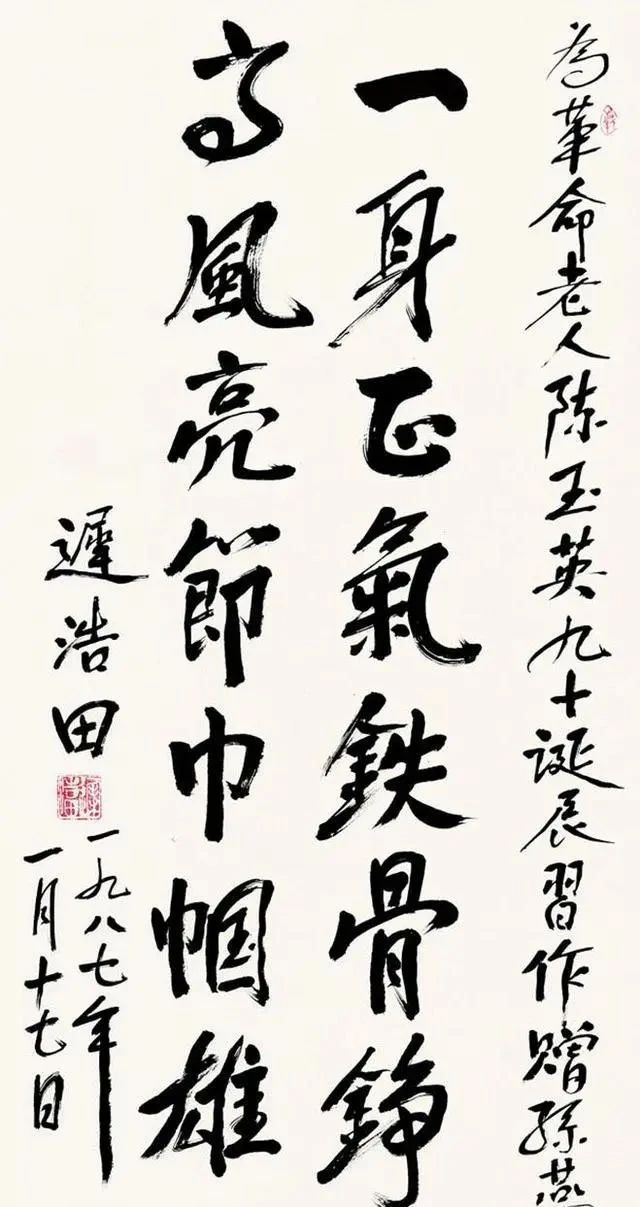 為革命老人陈玉英九十诞辰習作贈孫燕
一身正氣鉄骨錚
高風亮節巾帼雄
遲浩田
一九八七年
一月十七日